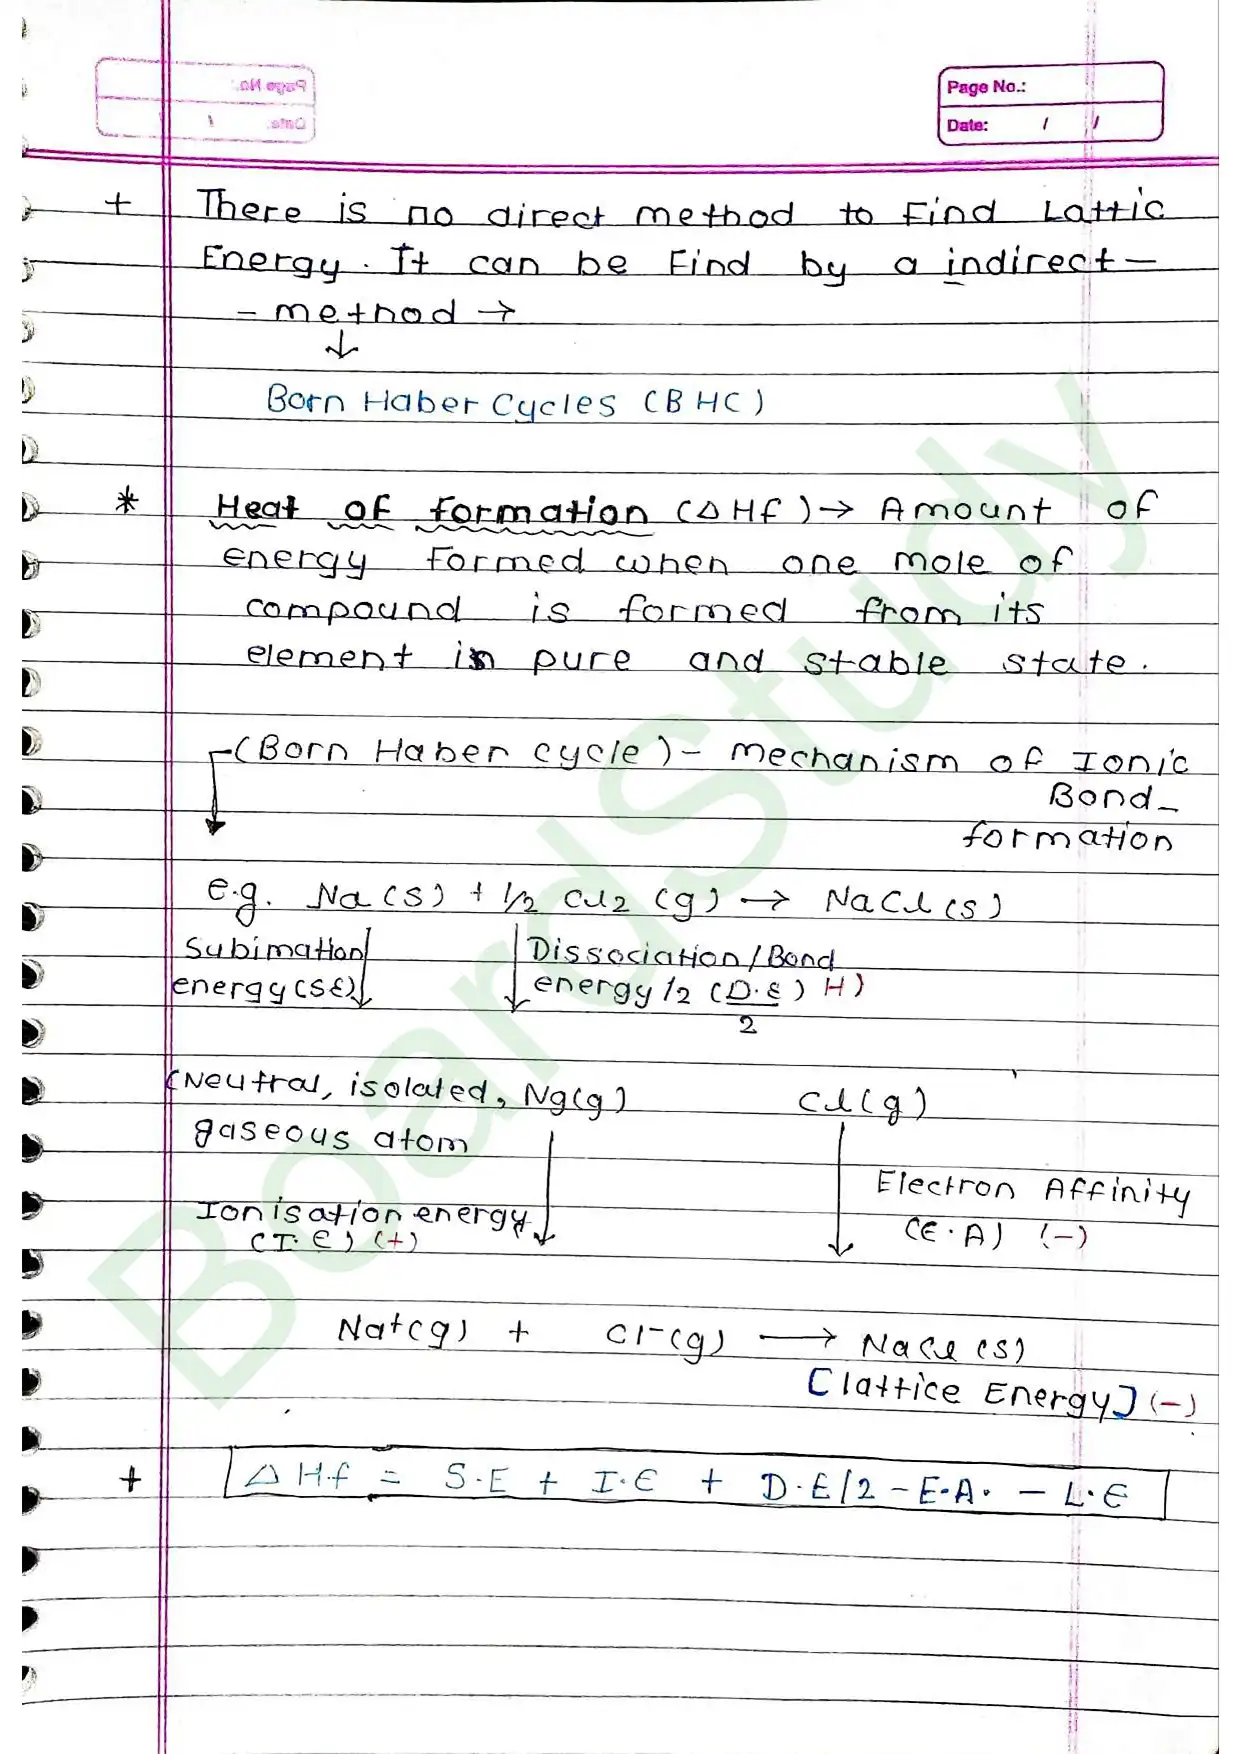 Page No.:
Date: / /
+ There is no direct method to Find Lattic
Energy. It can be Find by a indirect-
- method →
↓
Born Haber Cycles (BHC)
* Heat of formation (△Hf) → Amount of
energy formed when one mole of
compound is formed from its
element in pure and stable state.
(Born Haber cycle) - mechanism of Ionic
Bond-
formation
e.g. Na(s) + 1/2 Cl2 (g) → NaCl(s)
Subimation
energy(SE)
Dissociation/Bond
energy/2 (D.E) H)
2
(Neutral, isolated, Ng(g)
gaseous atom
Cl(g)
Ionisation energy
(I.E) (+)
Electron Affinity
(E.A) (-)
Na+(g) + Cl-(g) → NaCl(s)
[lattice Energy] (-)
+ △Hf = S.E + I.E + D.E/2 - E.A. - L.E
BoardStudy